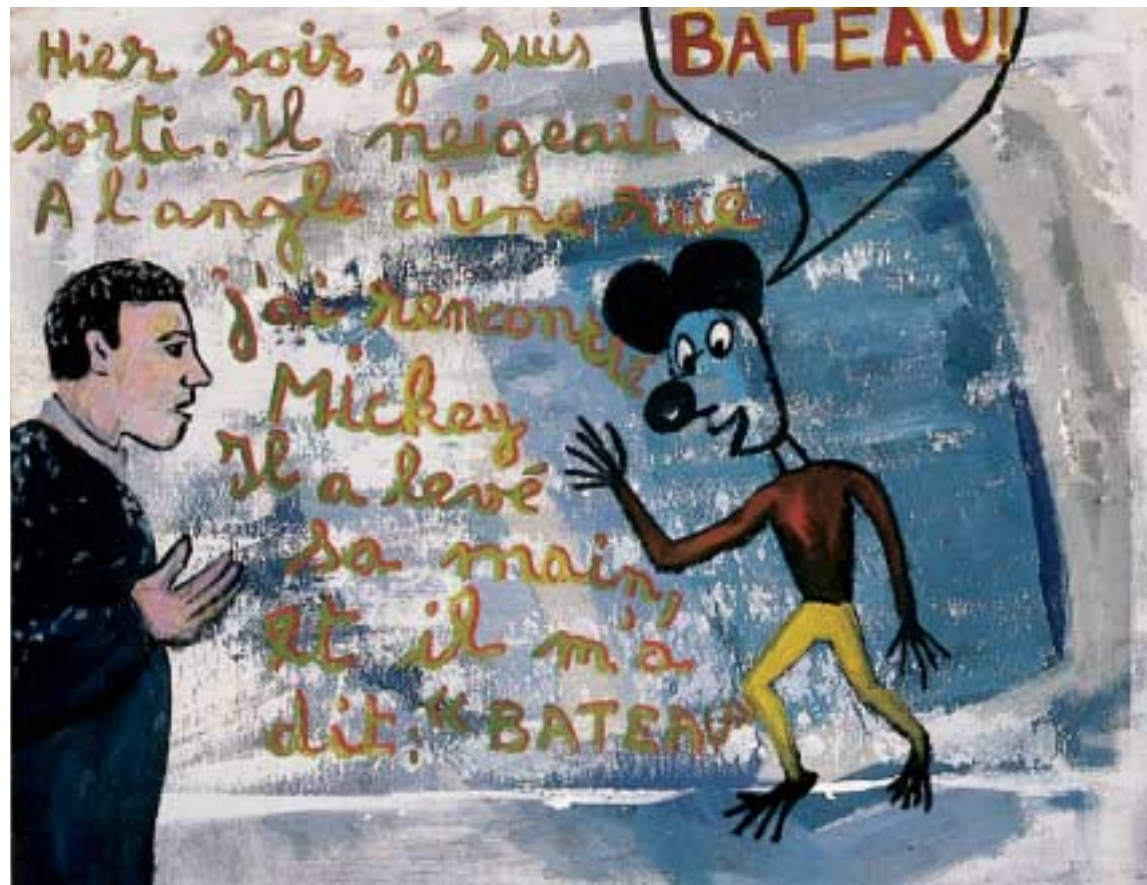 BATEAU!
Hier soir je suis
sorti. Il neigeait
A l'angle d'une rue
j'ai rencontré
Mickey
Il a levé
sa main,
et il m'a
dit: "BATEAU"